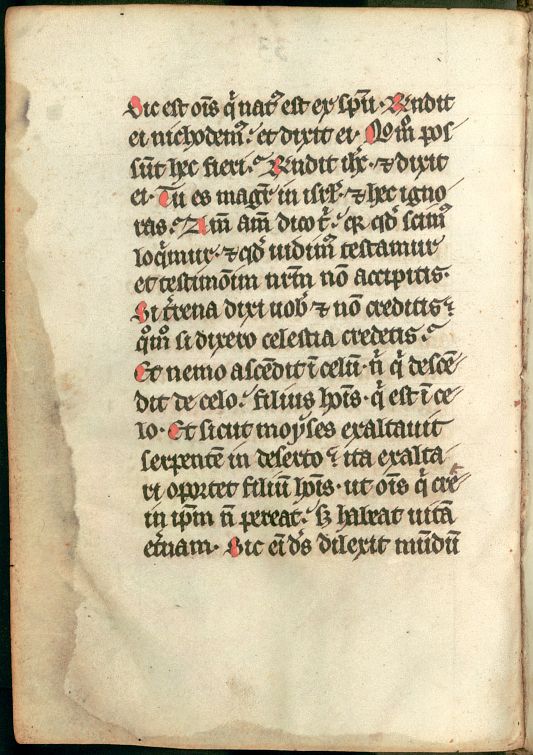 Sic est oīs q̇ natꝰ est ex spū· Rn̄dit
ei nichodemꝰ· et dixit ei· Qomͦ pos
sūt hec fieri· Rn̄dit ih̄c· ⁊ dixit
ei· Tu es magr̄ in isrl̄· ⁊ hec igno
ras· Am̄ am̄ dico t̄· qꝛ qd̄ scimꝰ
loq̇mur· ⁊ qd̄ uidimꝰ testamur
et testimōim nr̄m nō accipitis·
Si t̄rena dixi uob̄ ⁊ nō creditis
qͦmͦ si dixero celestia credetis·
Et nemo ascēdit ī celū· n̄ q̇ descē
dit de celo· filius hoīs· q̇ est ī ce
lo· Et sicut moẏses exaltauit
serpentē in deserto ita exalta
ri oportet filiū hoīs· ut oīs q̇ cre
in ip̄m n̄ pereat· ſꝫ habeat uitā
et̄nam· Sic eī ds̄ dilexit mūdū